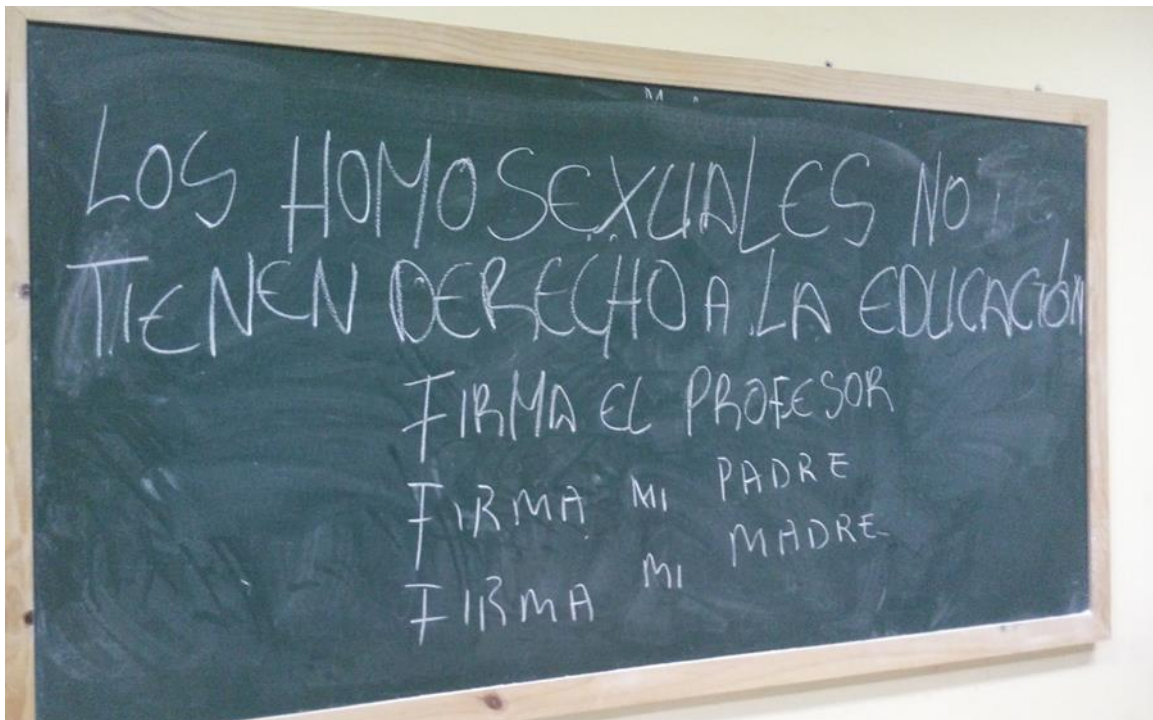 LOS HOMOSEXUALES NO
TIENEN DERECHO A LA EDUCACIÓN
FIRMA EL PROFESOR
FIRMA MI PADRE
FIRMA MI MADRE